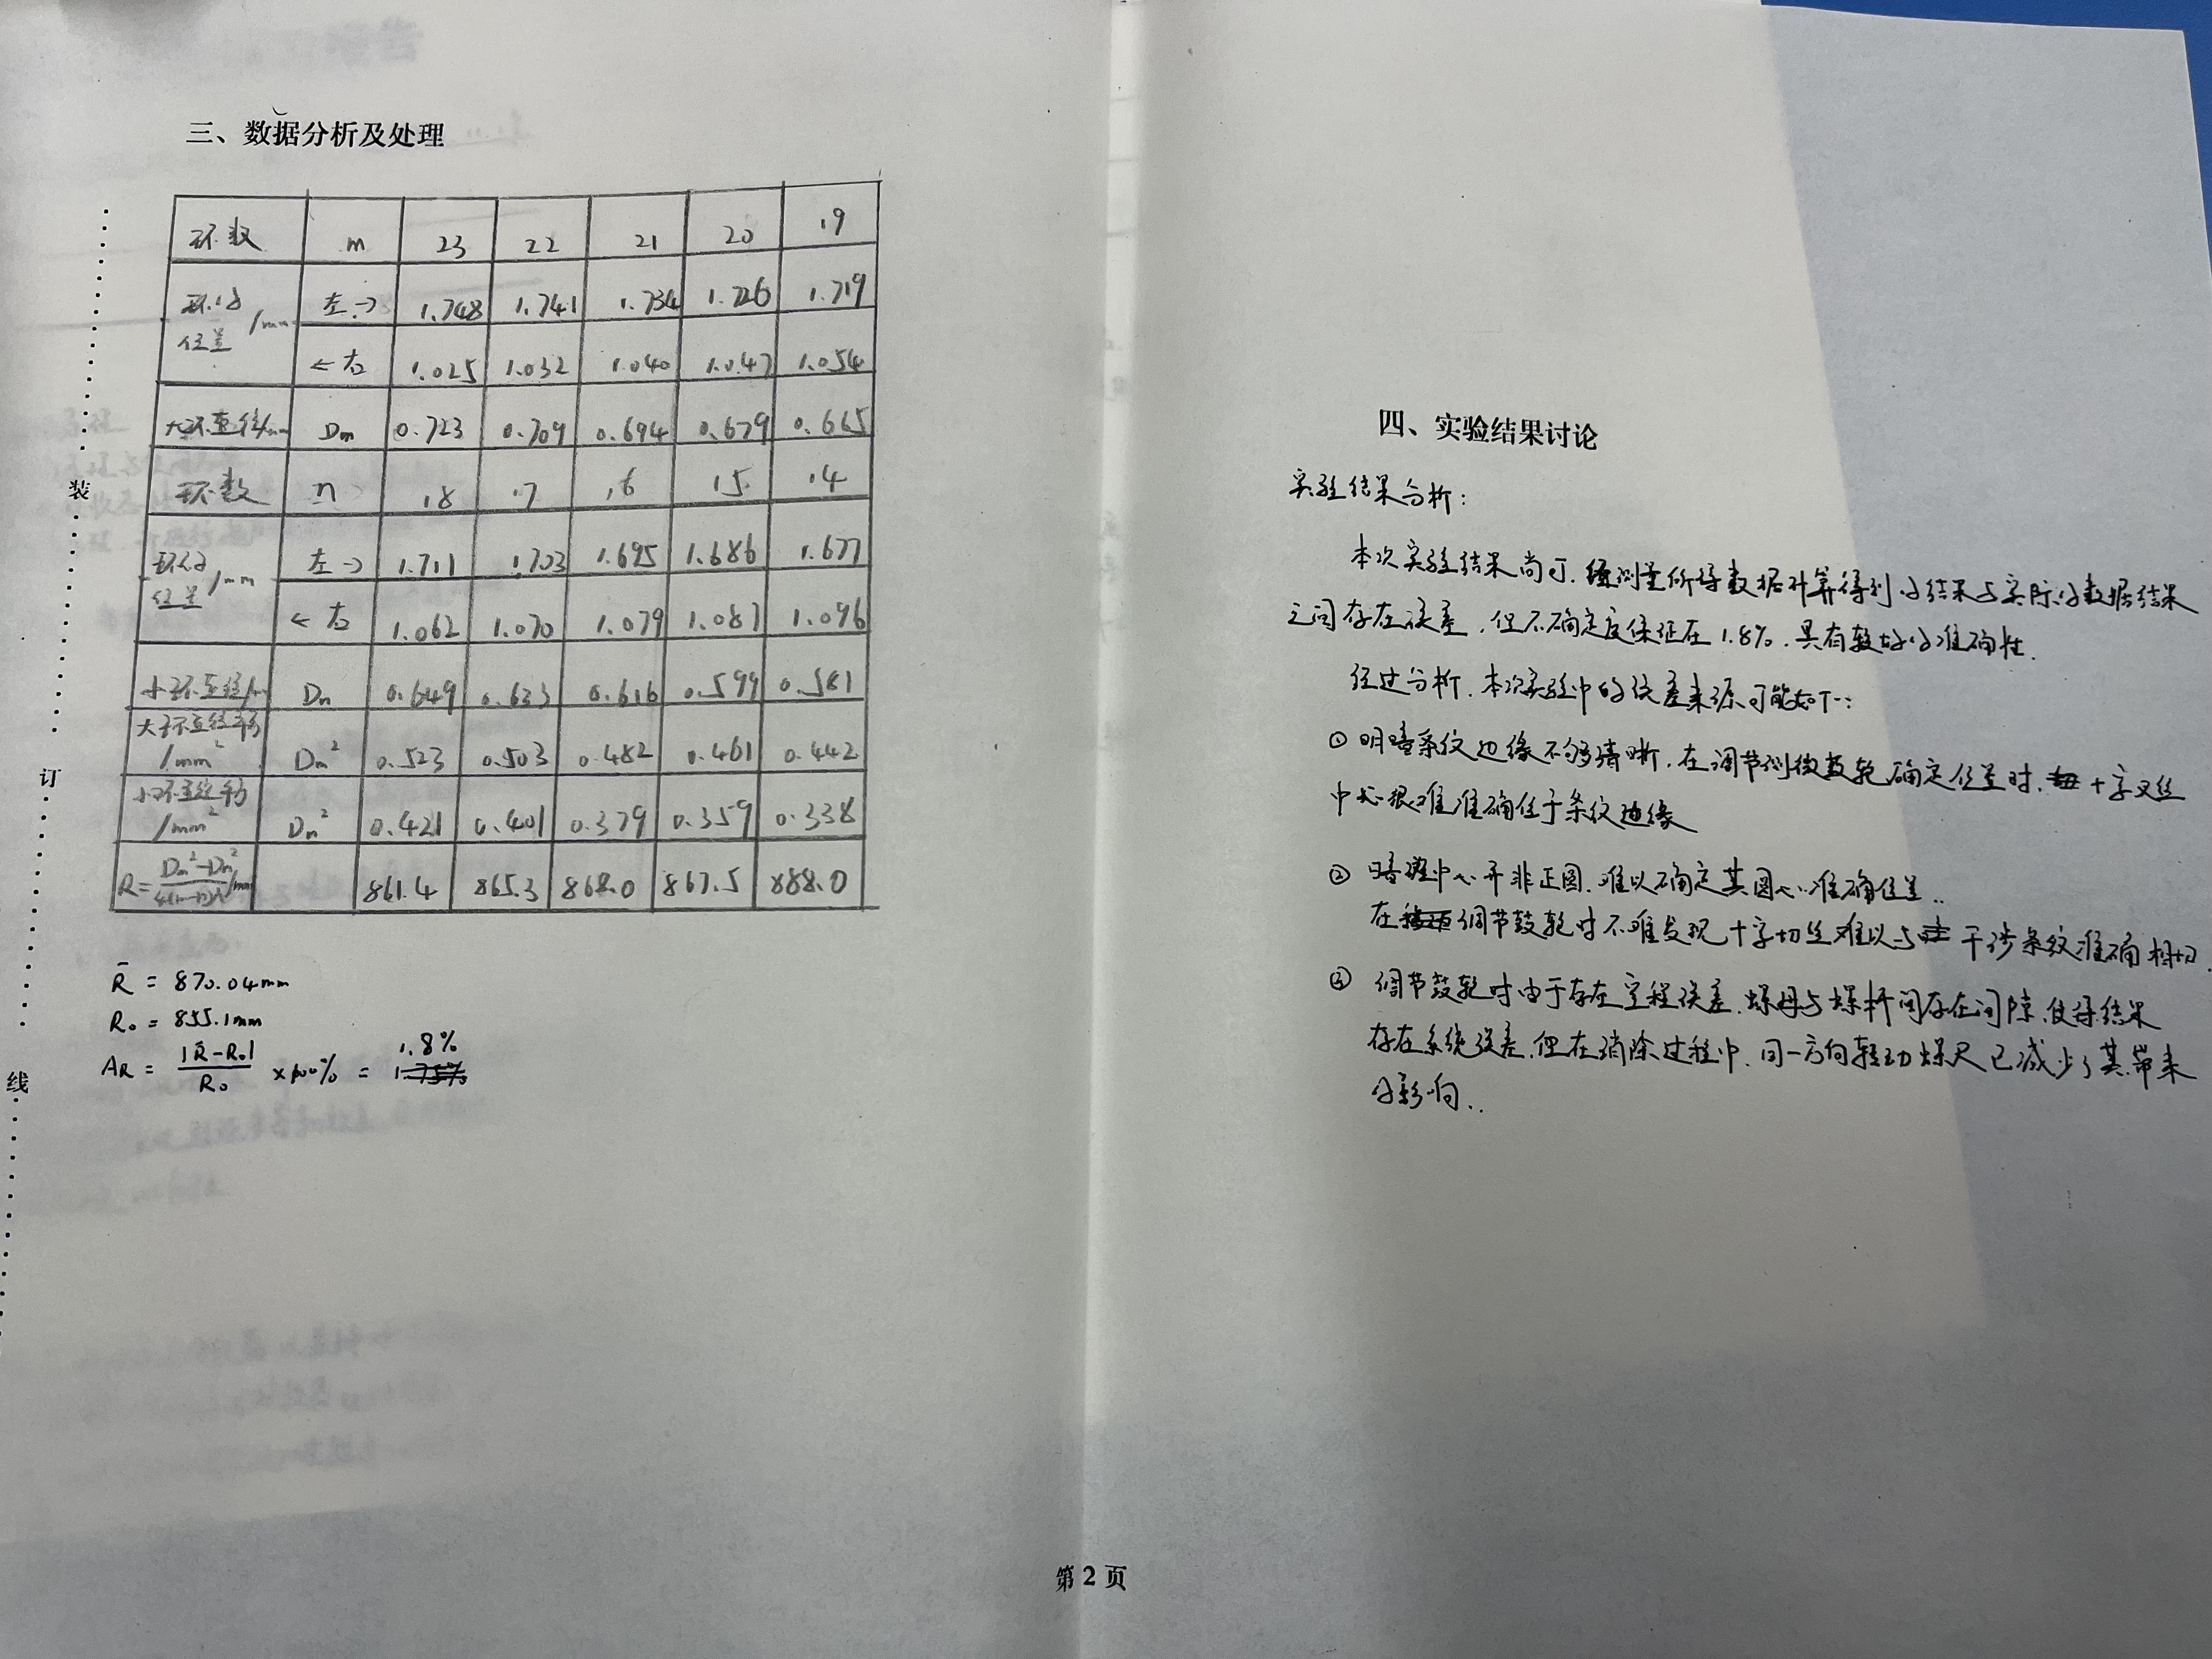 三、数据分析及处理
环数 m 23 22 21 20 19
环的位置/mm 左→ 1.748 1.741 1.734 1.726 1.719
←右 1.025 1.032 1.040 1.047 1.054
大环直径/mm Dm 0.723 0.709 0.694 0.679 0.665
环数 n 18 17 16 15 14
环的位置/mm 左→ 1.711 1.703 1.695 1.686 1.677
←右 1.062 1.070 1.079 1.087 1.096
小环直径/mm Dn 0.649 0.633 0.616 0.599 0.581
大环直径平方/mm² Dm² 0.523 0.503 0.482 0.461 0.442
小环直径平方/mm² Dn² 0.421 0.401 0.379 0.359 0.338
R=Dm²-Dn²/4(m-n)λ/mm 861.4 865.3 868.0 867.5 888.0
R̄ = 870.04mm
R₀ = 855.1mm
AR = |R̄-R₀|/R₀ ×100% = 1.8%
装
订
线
四、实验结果讨论
实验结果分析:
本次实验结果尚可.经测量所得数据计算得到的结果与实际的数据结果
之间存在误差,但不确定度保证在1.8%.具有较好的准确性.
经过分析.本次实验中的误差来源可能如下:
① 明暗条纹边缘不够清晰.在调节测微鼓轮确定位置时.十字叉丝
中心很难准确位于条纹边缘
② 暗斑中心并非正圆.难以确定其圆心准确位置..
在调节鼓轮时不难发现十字切丝难以与干涉条纹准确相切.
③ 调节鼓轮时由于存在空程误差.螺母与螺杆间存在间隙.使得结果
存在系统误差.但在消除过程中.同一方向转动螺尺已减少了其带来
的影响..
第 2 页